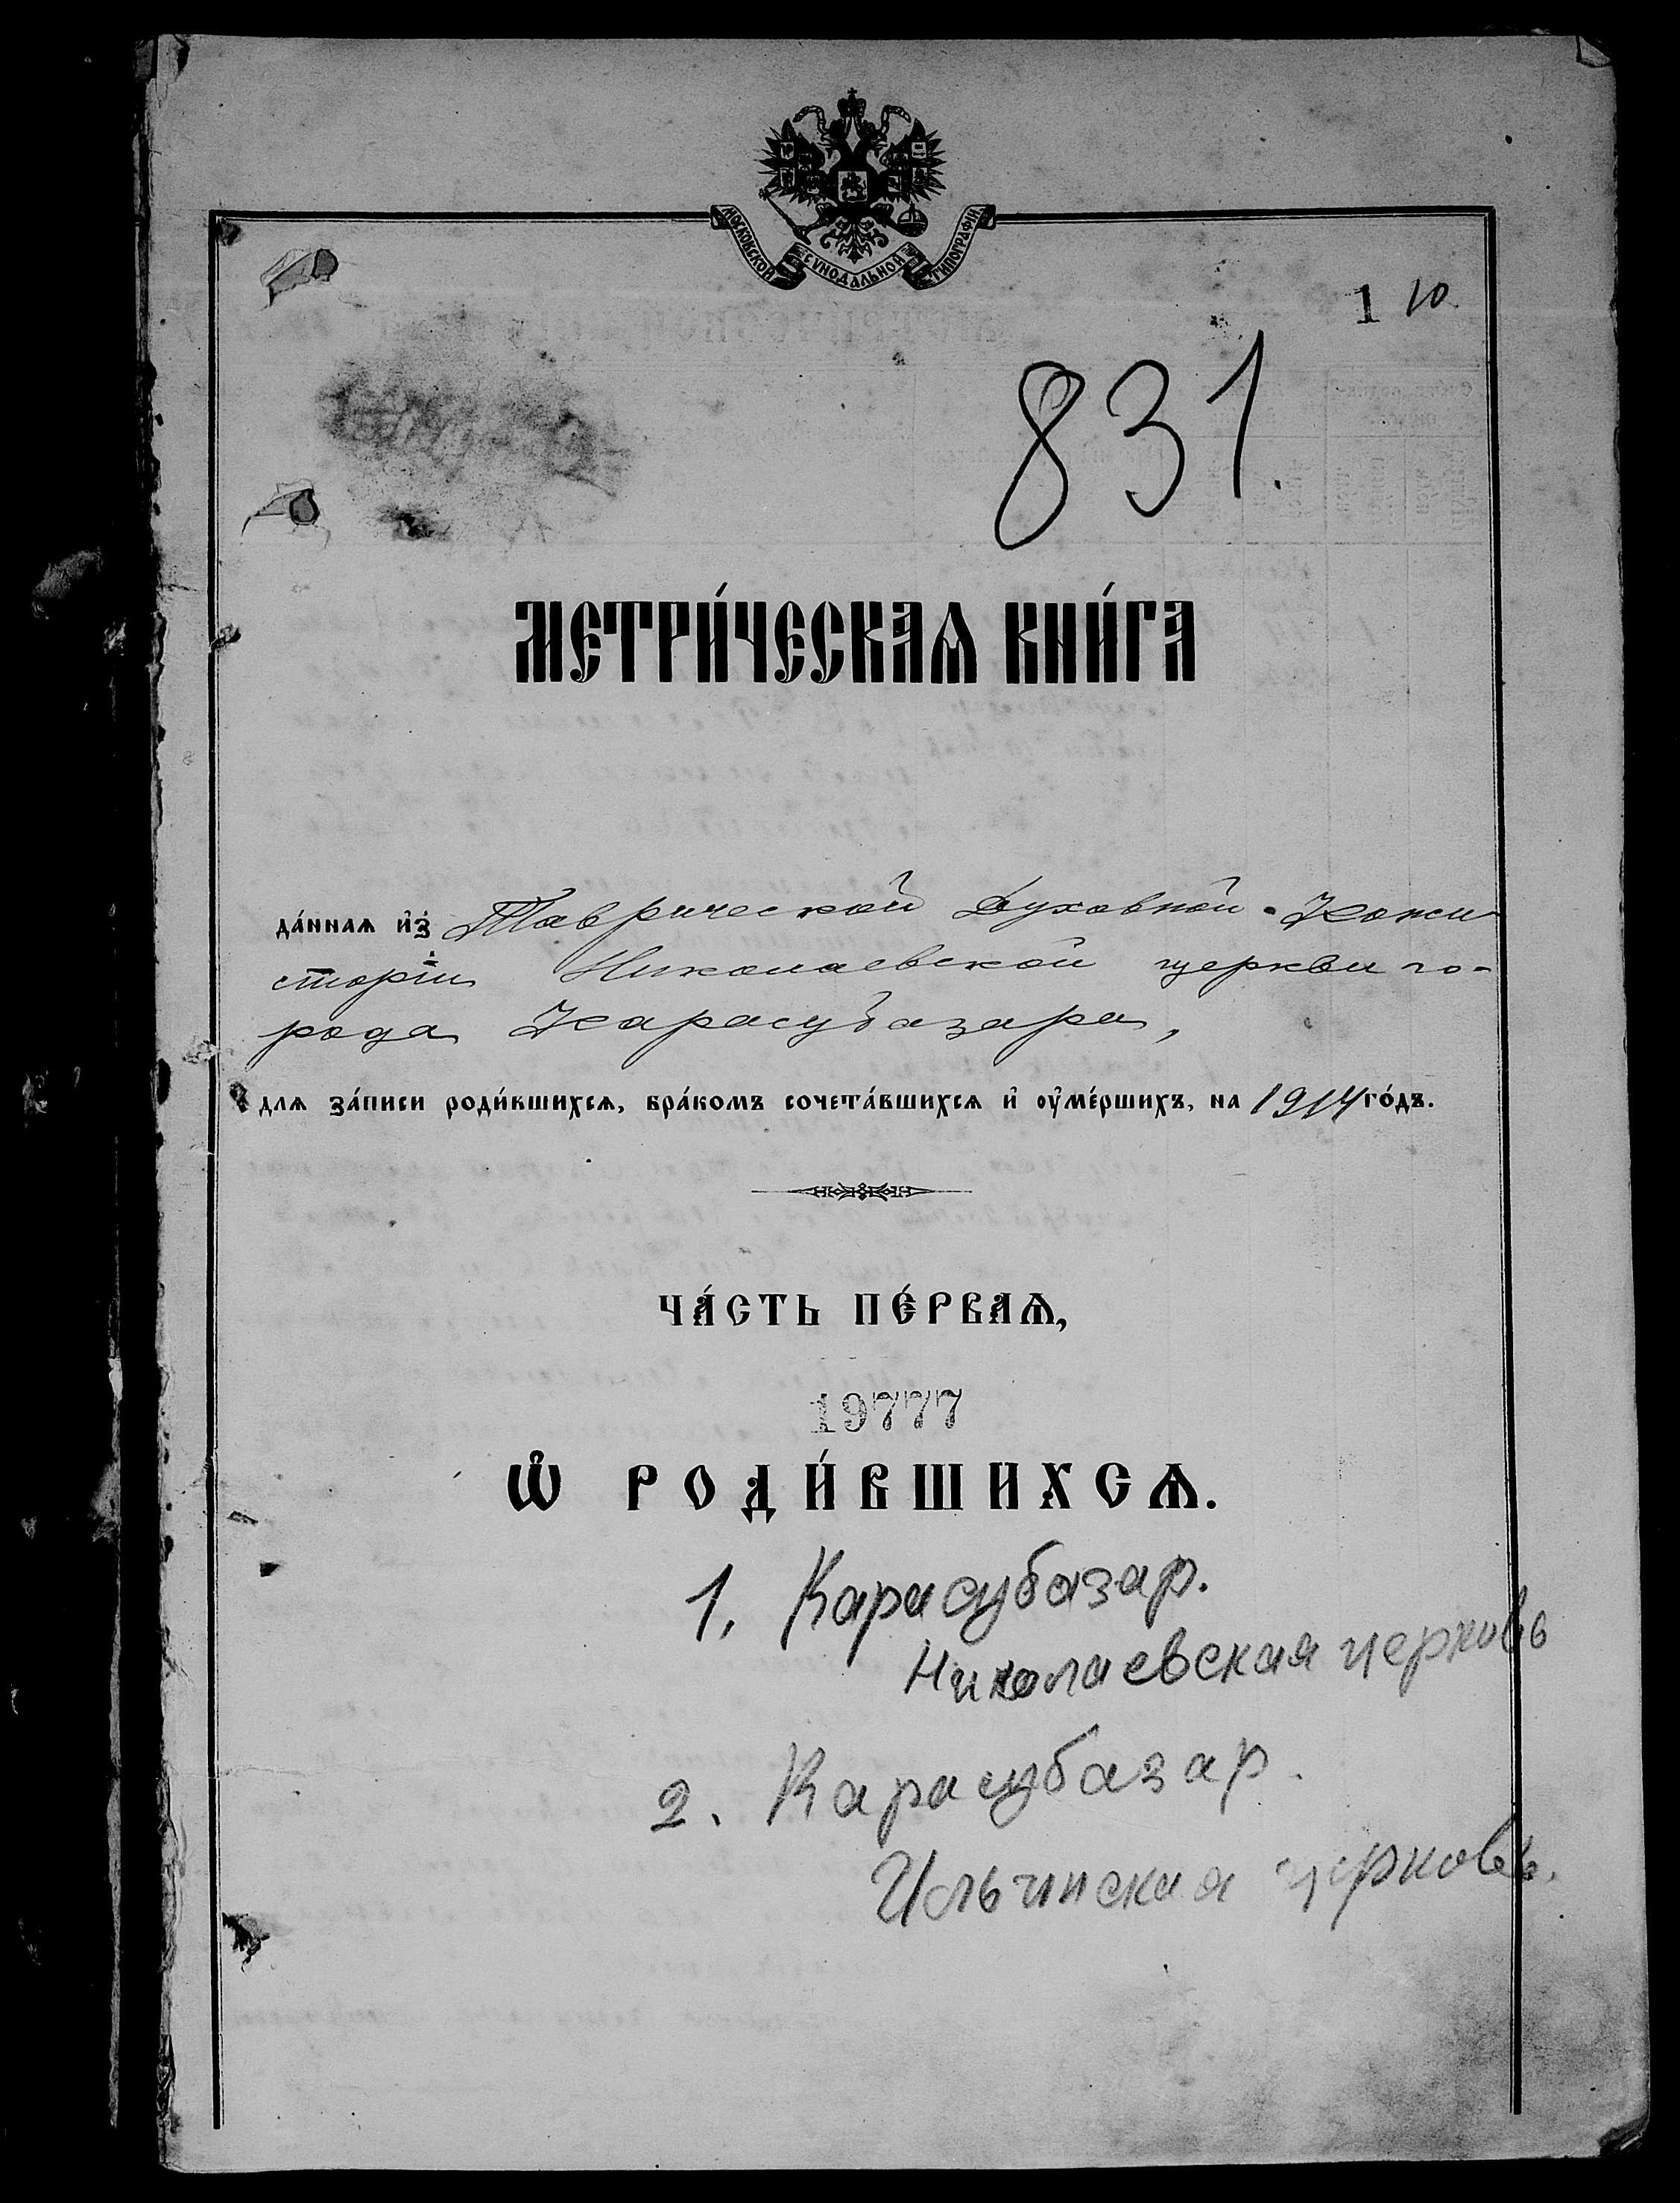 МОСКОВСКОЙ СѴНОДАЛЬНОЙ ТИПОГРАФІИ
1 10
831.
МЕТРИ́ЧЕСКАѦ КНИ́ГА
да́ннаѧ и҆з̾ Таврической Духовной Конси-
сторіи Николаевской церкви го-
рода Карасубазара,
для за́писи роди́вшихсѧ, бра́комъ сочета́вшихсѧ и҆ ᲂу҆ме́ршихъ, на 1914 го́дъ.
ЧА́СТЬ ПЕ́РВАѦ,
19777
Ѡ҆ РОДИ́ВШИХСѦ.
1. Карасубазар.
Николаевская церковь
2. Карасубазар.
Ильинская церковь.